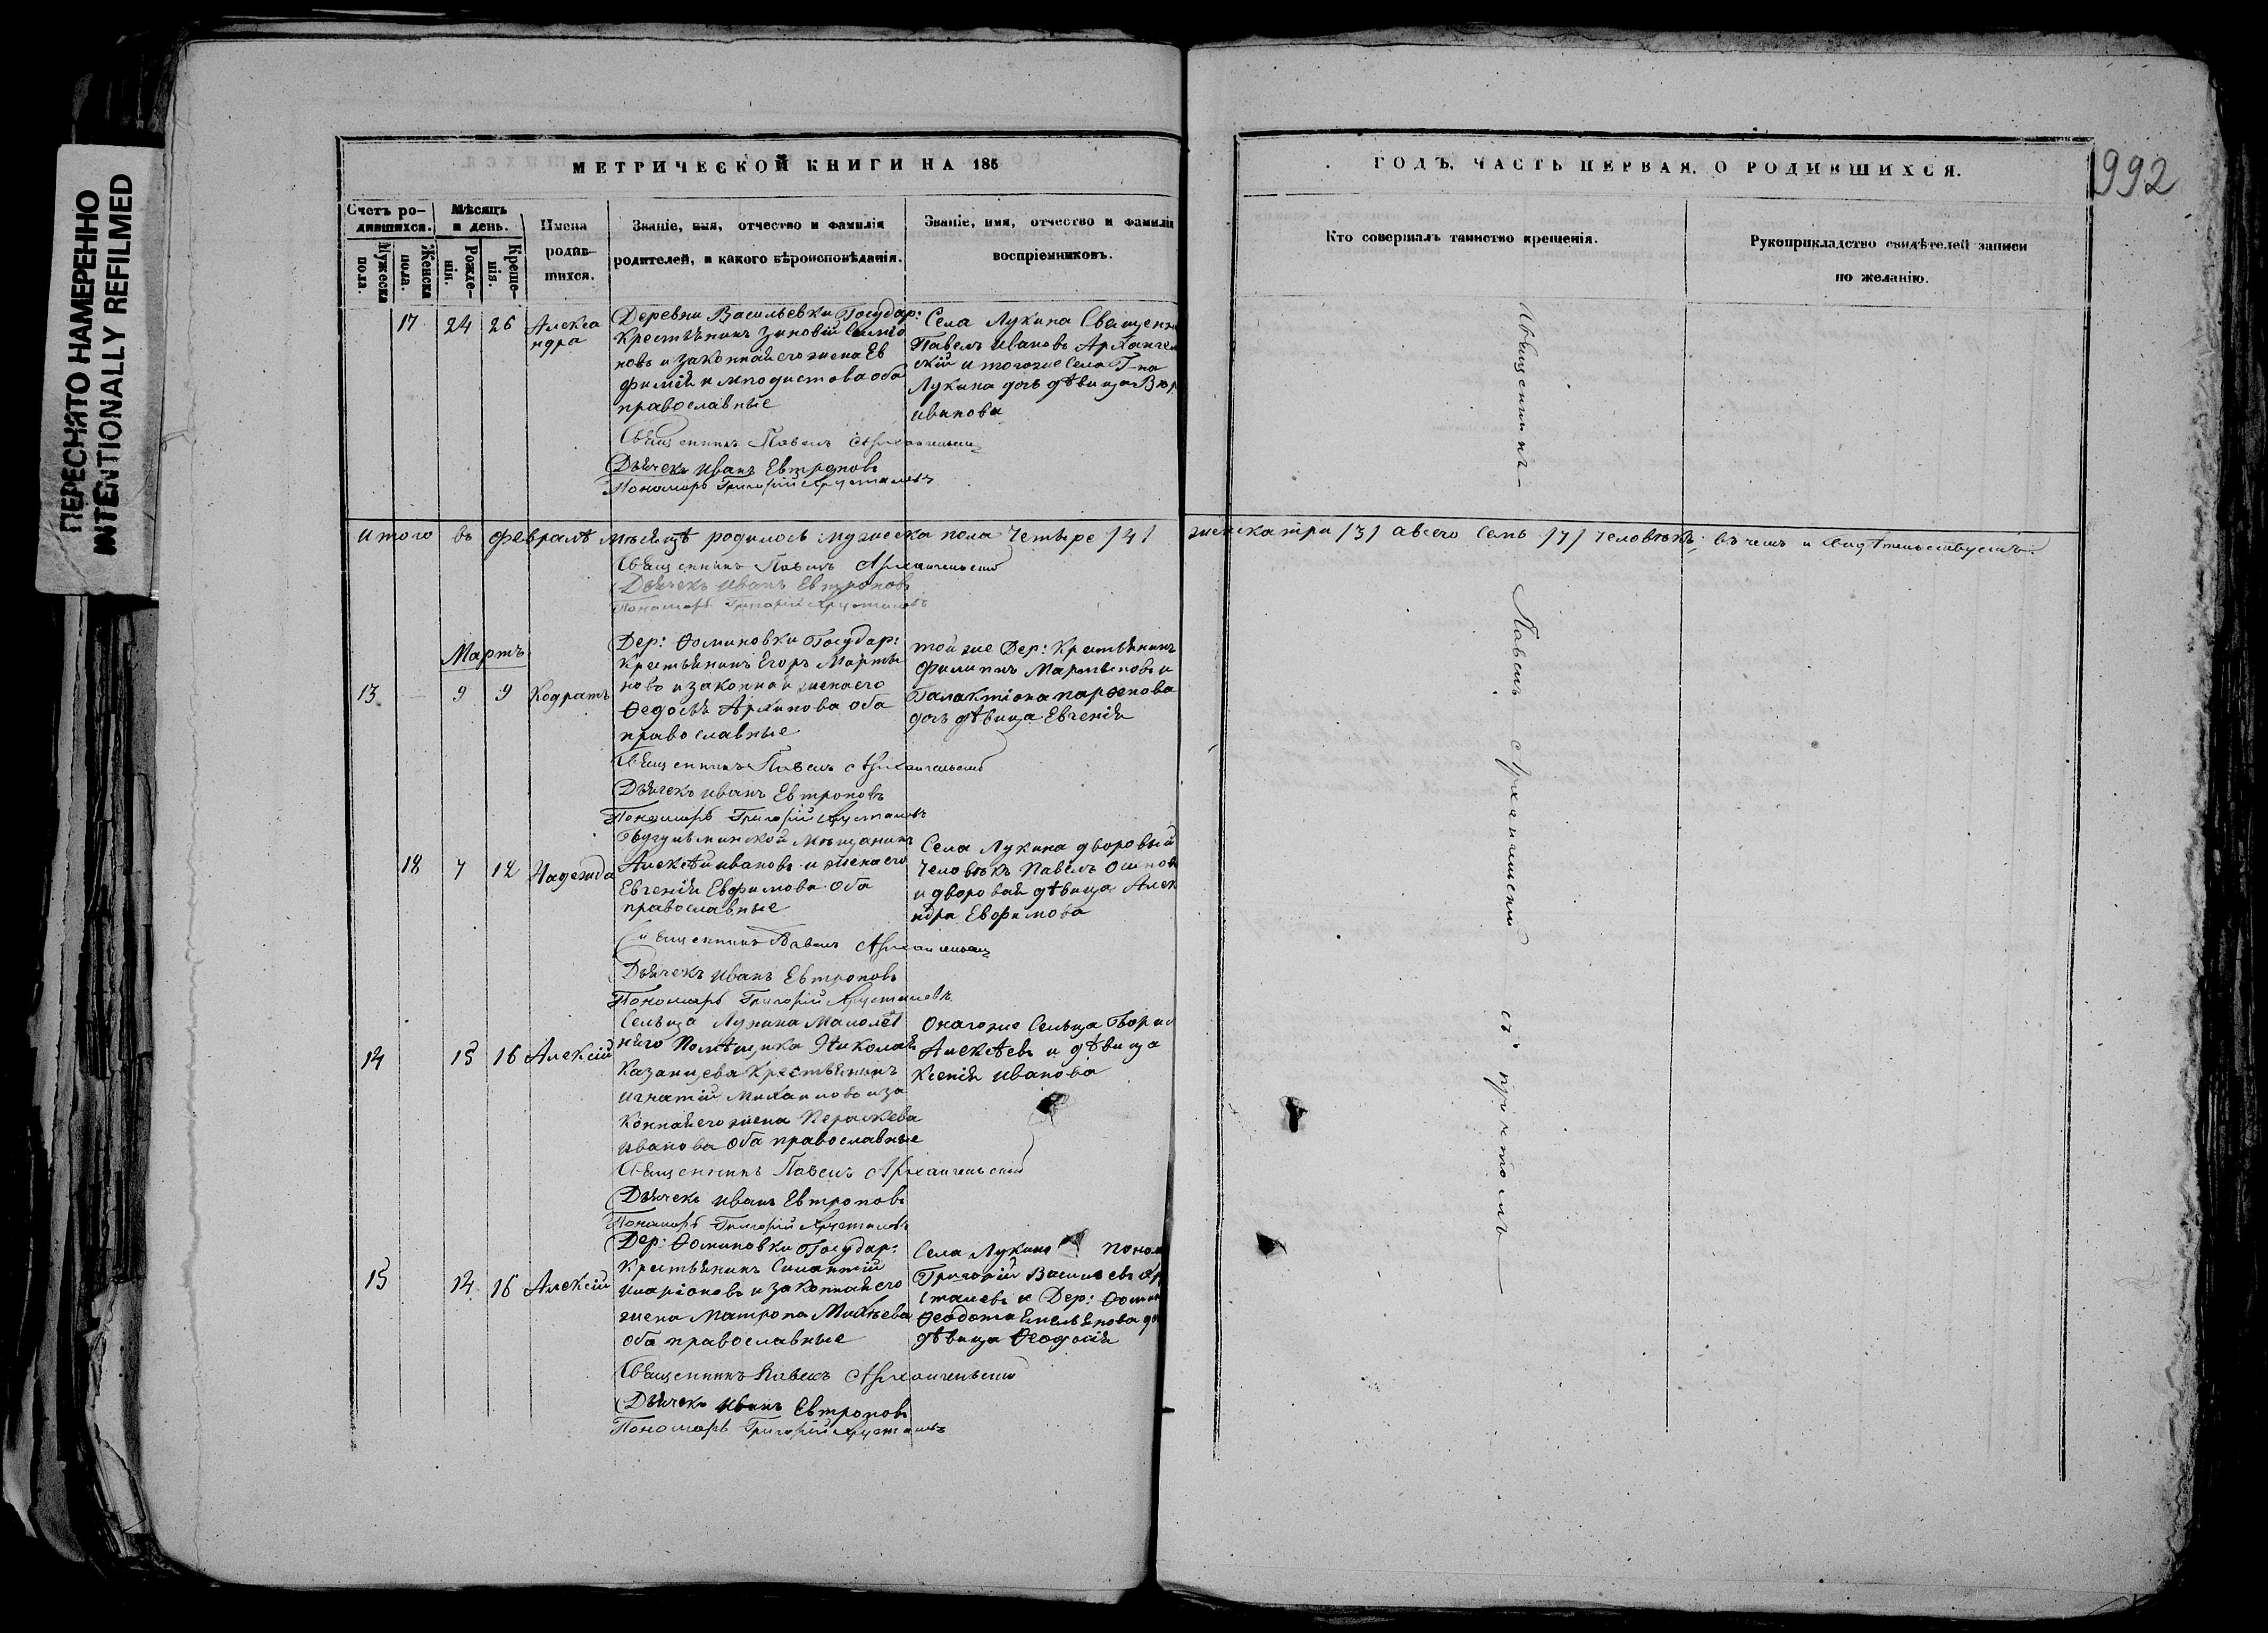 ПЕРЕСНЯТО НАМЕРЕННО
INTENTIONALLY REFILMED
МЕТРИЧЕСКОЙ КНИГИ НА 185
ГОДЪ, ЧАСТЬ ПЕРВАЯ, О РОДИВШИХСЯ.
992
Счетъ ро-
дившихся.
Мужеска
пола.
Женска
пола.
Мѣсяцъ
и день.
Рожде-
нія.
Креще-
нія.
Имена
родив-
шихся.
Званіе, имя, отчество и фамилія
родителей, и какого вѣроисповѣданія.
Званіе, имя, отчество и фамилія
воспріемниковъ.
Кто совершалъ таинство крещенія.
Рукоприкладство свидѣтелей записи
по желанію.
17 24 26 Алекса
ндра
Деревни Васильевки Государ:
Крестьянинъ Зиновій Симео
новъ и законная его жена Ев
фимія оба
православные
Села Лукина Священн
Павелъ Ивановъ Арханген
скій и тогоже Села Г-на
Лукина дочь дѣвица
Иванова
Священникъ Павелъ Архангельскій
Дьячекъ Иванъ Евтроповъ
Пономарь Григорій Хрусталевъ
Итого въ Февралѣ мѣсяцѣ родилось мужеска пола Четыре /4/ женска три /3/ а всего семь /7/ человѣкъ; въ чемъ и свидѣтельствуемъ.
Священникъ Павелъ Архангельскій
Дьячекъ Иванъ Евтроповъ
Пономарь Григорій Хрусталевъ
Мартъ
13 9 9 Кодратъ
Дер: Ѳоминовки Государ:
Крестьянинъ Егоръ Марты
новъ и законная жена его
Ѳедосья Архипова оба
православные
той же Дер: Крестьянинъ
Филиппъ Мартыновъ и
Галактіона Парѳенова
дочь дѣвица Евгенія
Священникъ Павелъ Архангельскій
Дьячекъ Иванъ Евтроповъ
Пономарь Григорій Хрусталевъ
18 7 12 Надежда
Бугульминской мѣщанинъ
Алексѣй Ивановъ и жена его
Евгенія Евфимова оба
православные
Села Лукина дворовый
Человѣкъ Павелъ Осипов
и дворовая дѣвица Алек
ндра Евфимова
Священникъ Павелъ Архангельскій
Дьячекъ Иванъ Евтроповъ
Пономарь Григорій Хрусталевъ
14 15 16 Алексій
Сельца Лукина Малолѣт
няго Помѣщика Николая
Казанцева Крестьянинъ
Игнатій Михаиловъ и за
конная его жена Параскева
Иванова оба православные
Онагоже Сельца Борис
Алексѣевъ и дѣвица
Ксенія Иванова
Священникъ Павелъ Архангельскій
Дьячекъ Иванъ Евтроповъ
Пономарь Григорій Хрусталевъ
15 14 16 Алексій
Дер: Ѳоминовки Государ:
Крестьянинъ Силантій
Иларіоновъ и законная его
жена Матрона Михѣева
оба православные
Села Лукина Поном
Григорій Васильевъ Хр
сталевъ и Дер: Ѳомин
Ѳеодота Емельянова до
дѣвица Ѳеодосія
Священникъ Павелъ Архангельскій
Дьячекъ Иванъ Евтроповъ
Пономарь Григорій Хрусталевъ
Священникъ Павелъ Архангельскій съ причтомъ